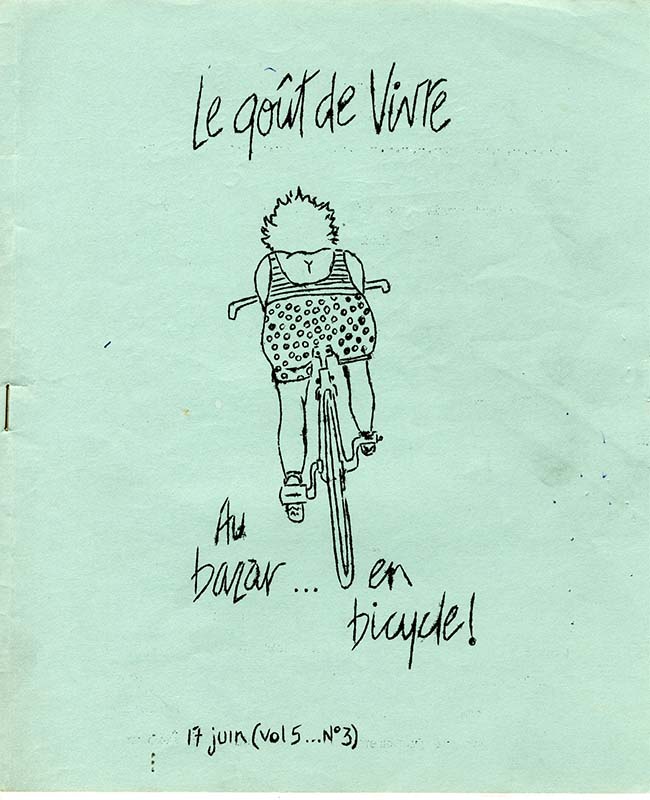 Le goût de Vivre
Au
bazar... en
bicycle!
17 juin (vol 5...N°3)